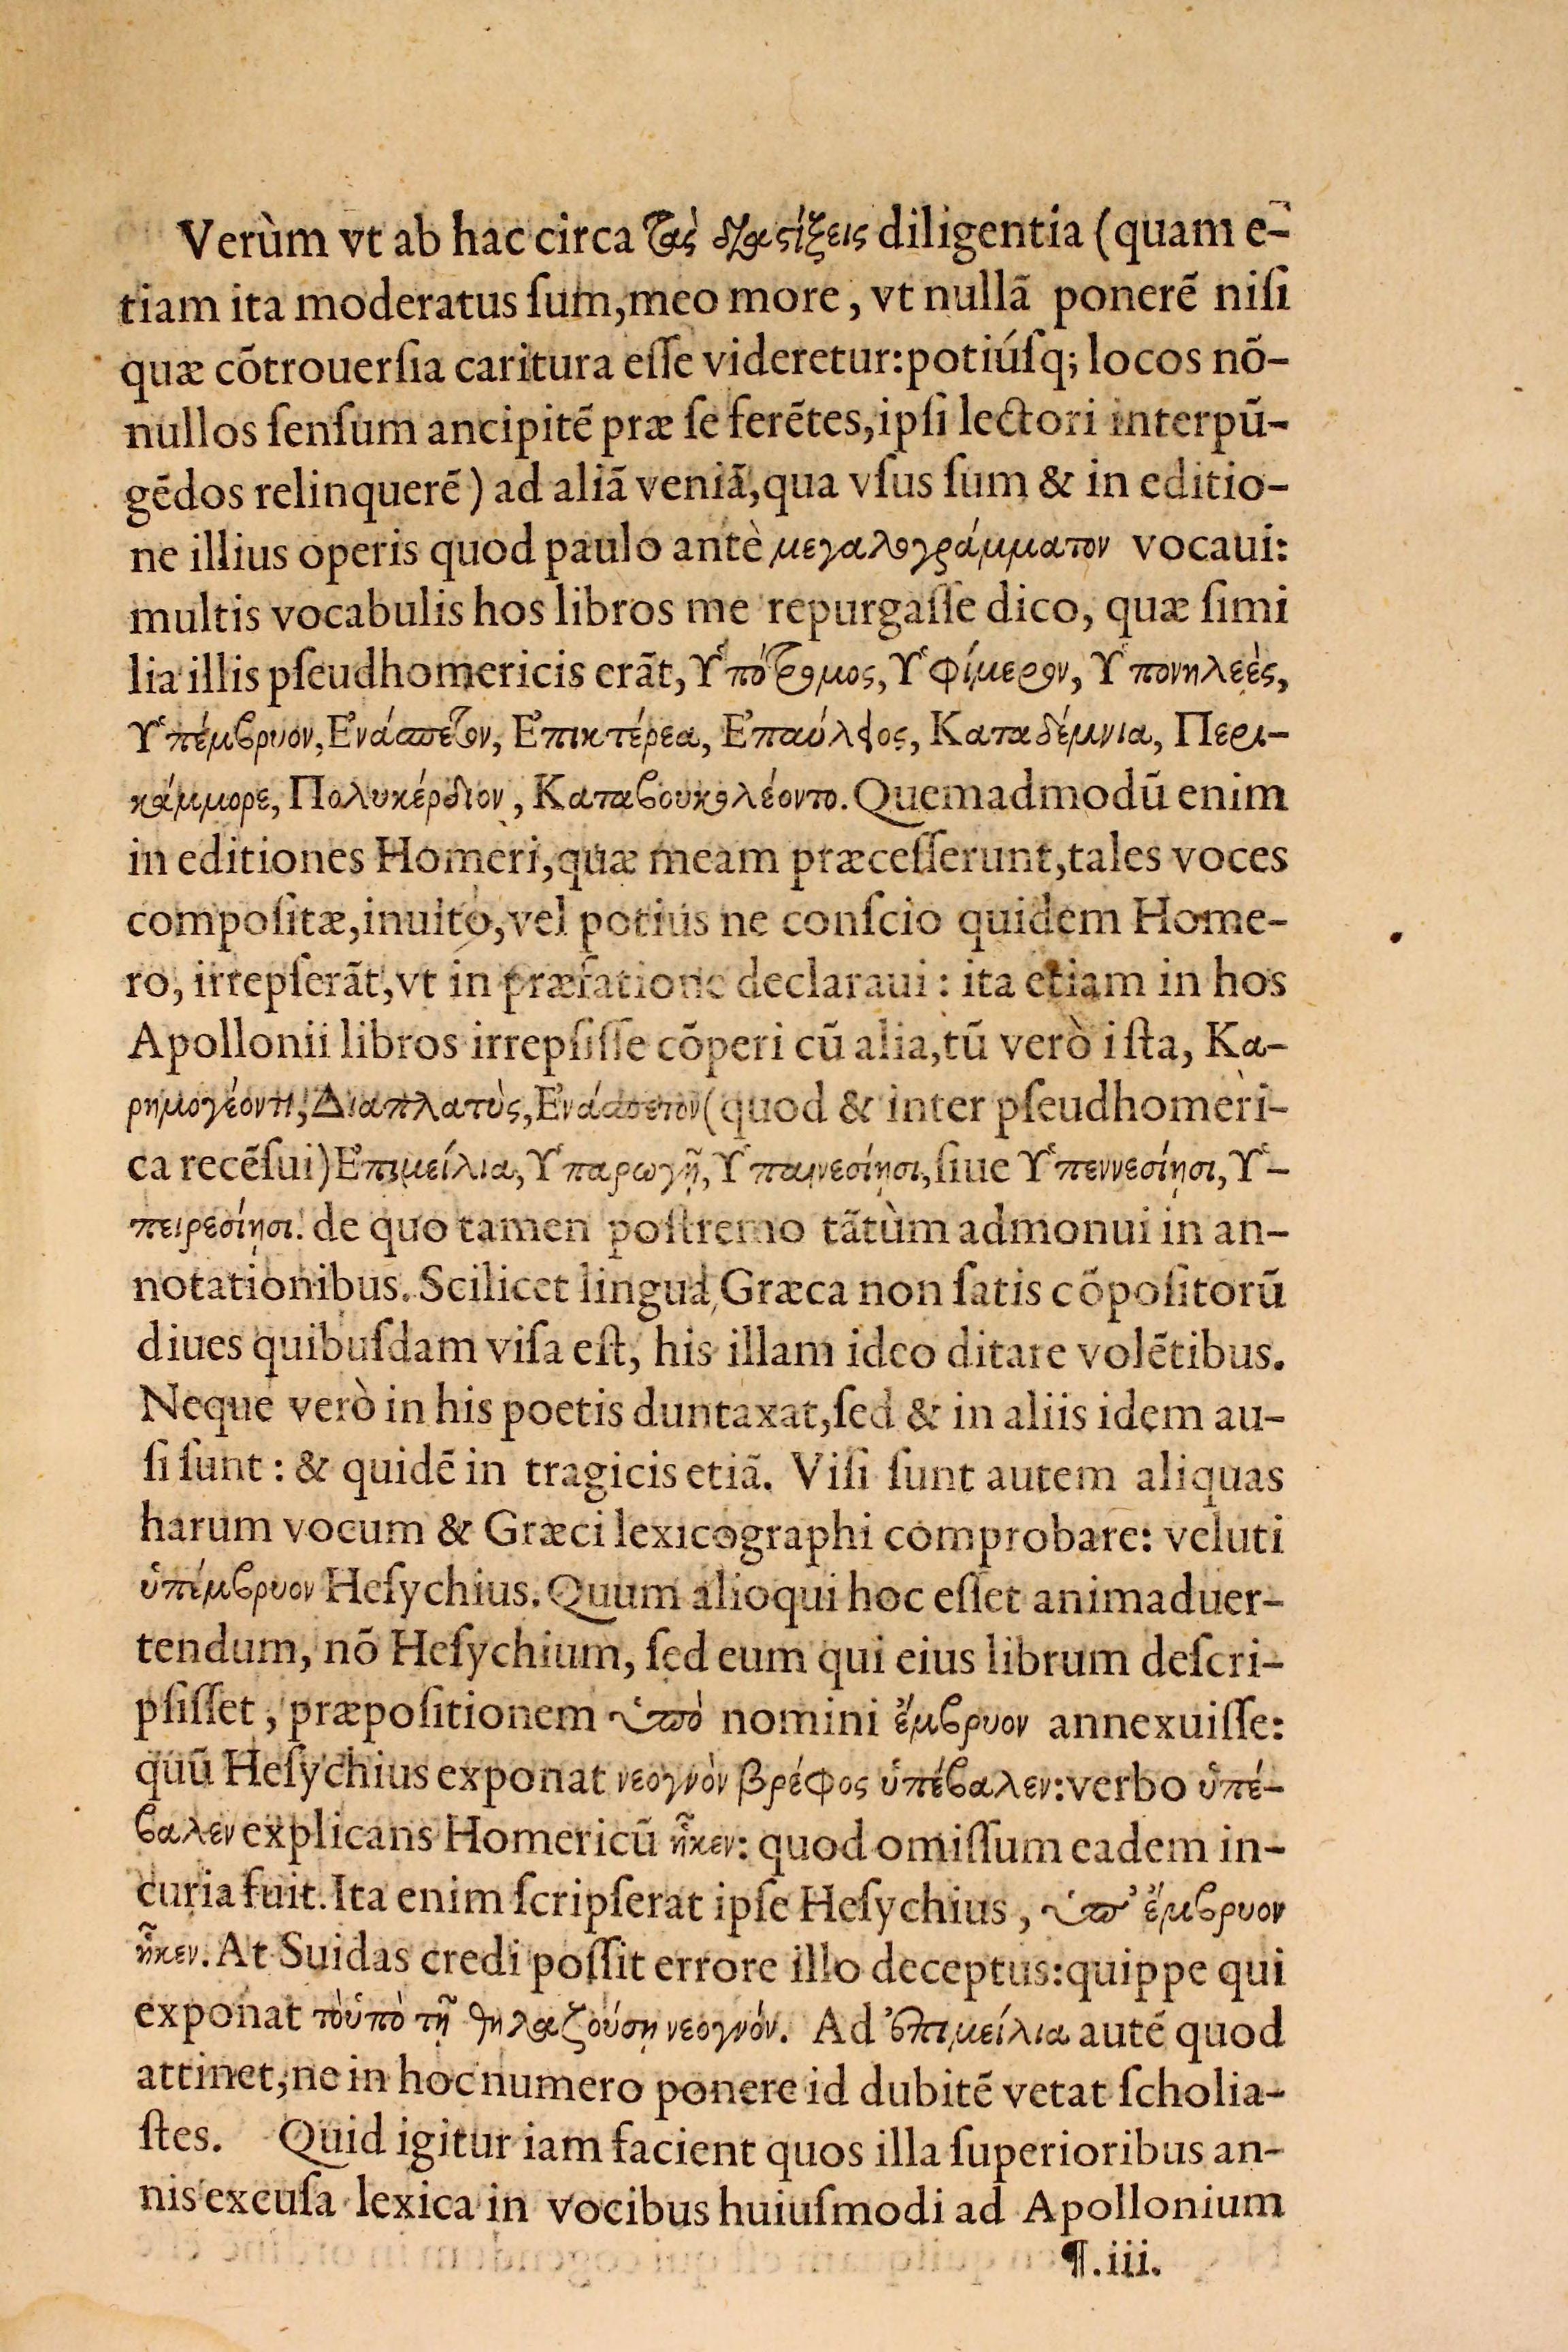 Verùm vt ab hac circa τὰς διαστίξεις diligentia (quam e-
tiam ita moderatus ſum,meo more, vt nullã ponerẽ niſi
quæ cõtrouerſia caritura eſſe videretur:potiúſq; locos nõ-
nullos ſenſum ancipitẽ præ ſe ferẽtes,ipſi lectori interpũ-
gẽdos relinquerẽ) ad aliã veniã,qua vſus ſum & in editio-
ne illius operis quod paulo antè μεγαλογράμματον vocaui:
multis vocabulis hos libros me repurgaſſe dico, quæ ſimi
lia illis pſeudhomericis erãt, Υπότρομος, Υφίμερον, Υπονηλεὲς,
Υπέμβρυον, Ενάασπετον, Επικτέρεα, Επαύλεος, Καταδέμνια, Περι-
κάμμορε, Πολυκέρδιον, Καταβουκολέοντο. Quemadmodũ enim
in editiones Homeri,quæ meam præceſſerunt,tales voces
compoſitæ,inuito,vel potius ne conſcio quidem Home-
ro, irrepſerãt,vt in præfatione declaraui: ita etiam in hos
Apollonii libros irrepſiſſe cõperi cũ alia,tũ verò iſta, Κα-
ρημογέοντι, Διαπλατὺς, Ενάασπετον (quod & inter pſeudhomeri-
ca recẽſui) Επιμείλια, Υπαρωγῇ, Υπαινεσίῃσι, ſiue Υπεννεσίῃσι, Υ-
πειρεσίῃσι: de quo tamen poſtremo tãtùm admonui in an-
notationibus. Scilicet lingua Græca non ſatis cõpoſitorũ
diues quibuſdam viſa eſt, his illam ideo ditare volẽtibus.
Neque verò in his poetis duntaxat,ſed & in aliis idem au-
ſi ſunt: & quidẽ in tragicis etiã. Viſi ſunt autem aliquas
harum vocum & Græci lexicographi comprobare: veluti
ὑπέμβρυον Heſychius. Quum alioqui hoc eſſet animaduer-
tendum, nõ Heſychium, ſed eum qui eius librum deſcri-
pſiſſet, præpoſitionem ὑπὸ nomini ἔμβρυον annexuiſſe:
quũ Heſychius exponat νεογνὸν βρέφος ὑπέβαλεν: verbo ὑπέ-
βαλεν explicans Homericũ ἧκεν: quod omiſſum eadem in-
curia fuit. Ita enim ſcripſerat ipſe Heſychius, ὑπ’ ἔμβρυον
ἧκεν. At Suidas credi poſſit errore illo deceptus:quippe qui
exponat τὸ ὑπὸ τῇ θηλαζούσῃ νεογνόν. Ad ἐπιμείλια autẽ quod
attinet,ne in hoc numero ponere id dubitẽ vetat ſcholia-
ſtes. Quid igitur iam facient quos illa ſuperioribus an-
nis excuſa lexica in vocibus huiuſmodi ad Apollonium
¶.iii.